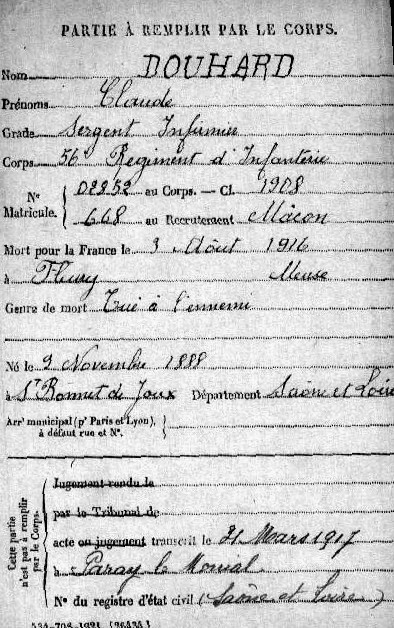 PARTIE À REMPLIR PAR LE CORPS.
Nom DOUHARD
Prénoms Claude
Grade Sergent Infirmier
Corps 56e Régiment d'Infanterie
N° Matricule. 02252 au Corps. — Cl. 1908
668 au Recrutement Mâcon
Mort pour la France le 3 Août 1916
à Fleury Meuse
Genre de mort Tué à l'ennemi
Né le 9 Novembre 1888
à St Bonnet de Joux Département Saône et Loire
Arrt municipal (pr Paris et Lyon),
à défaut rue et N°.
Cette partie n'est pas à remplir par le Corps.
Jugement rendu le
par le Tribunal de
acte ou jugement transcrit le 21 Mars 1917
à Paray le Monial
N° du registre d'état civil (Saône et Loire)
534-708-1921. [26434]